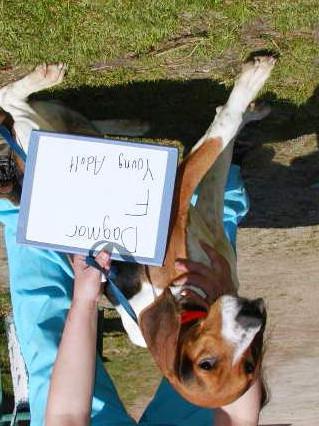 Dagmar
F
Young Adult